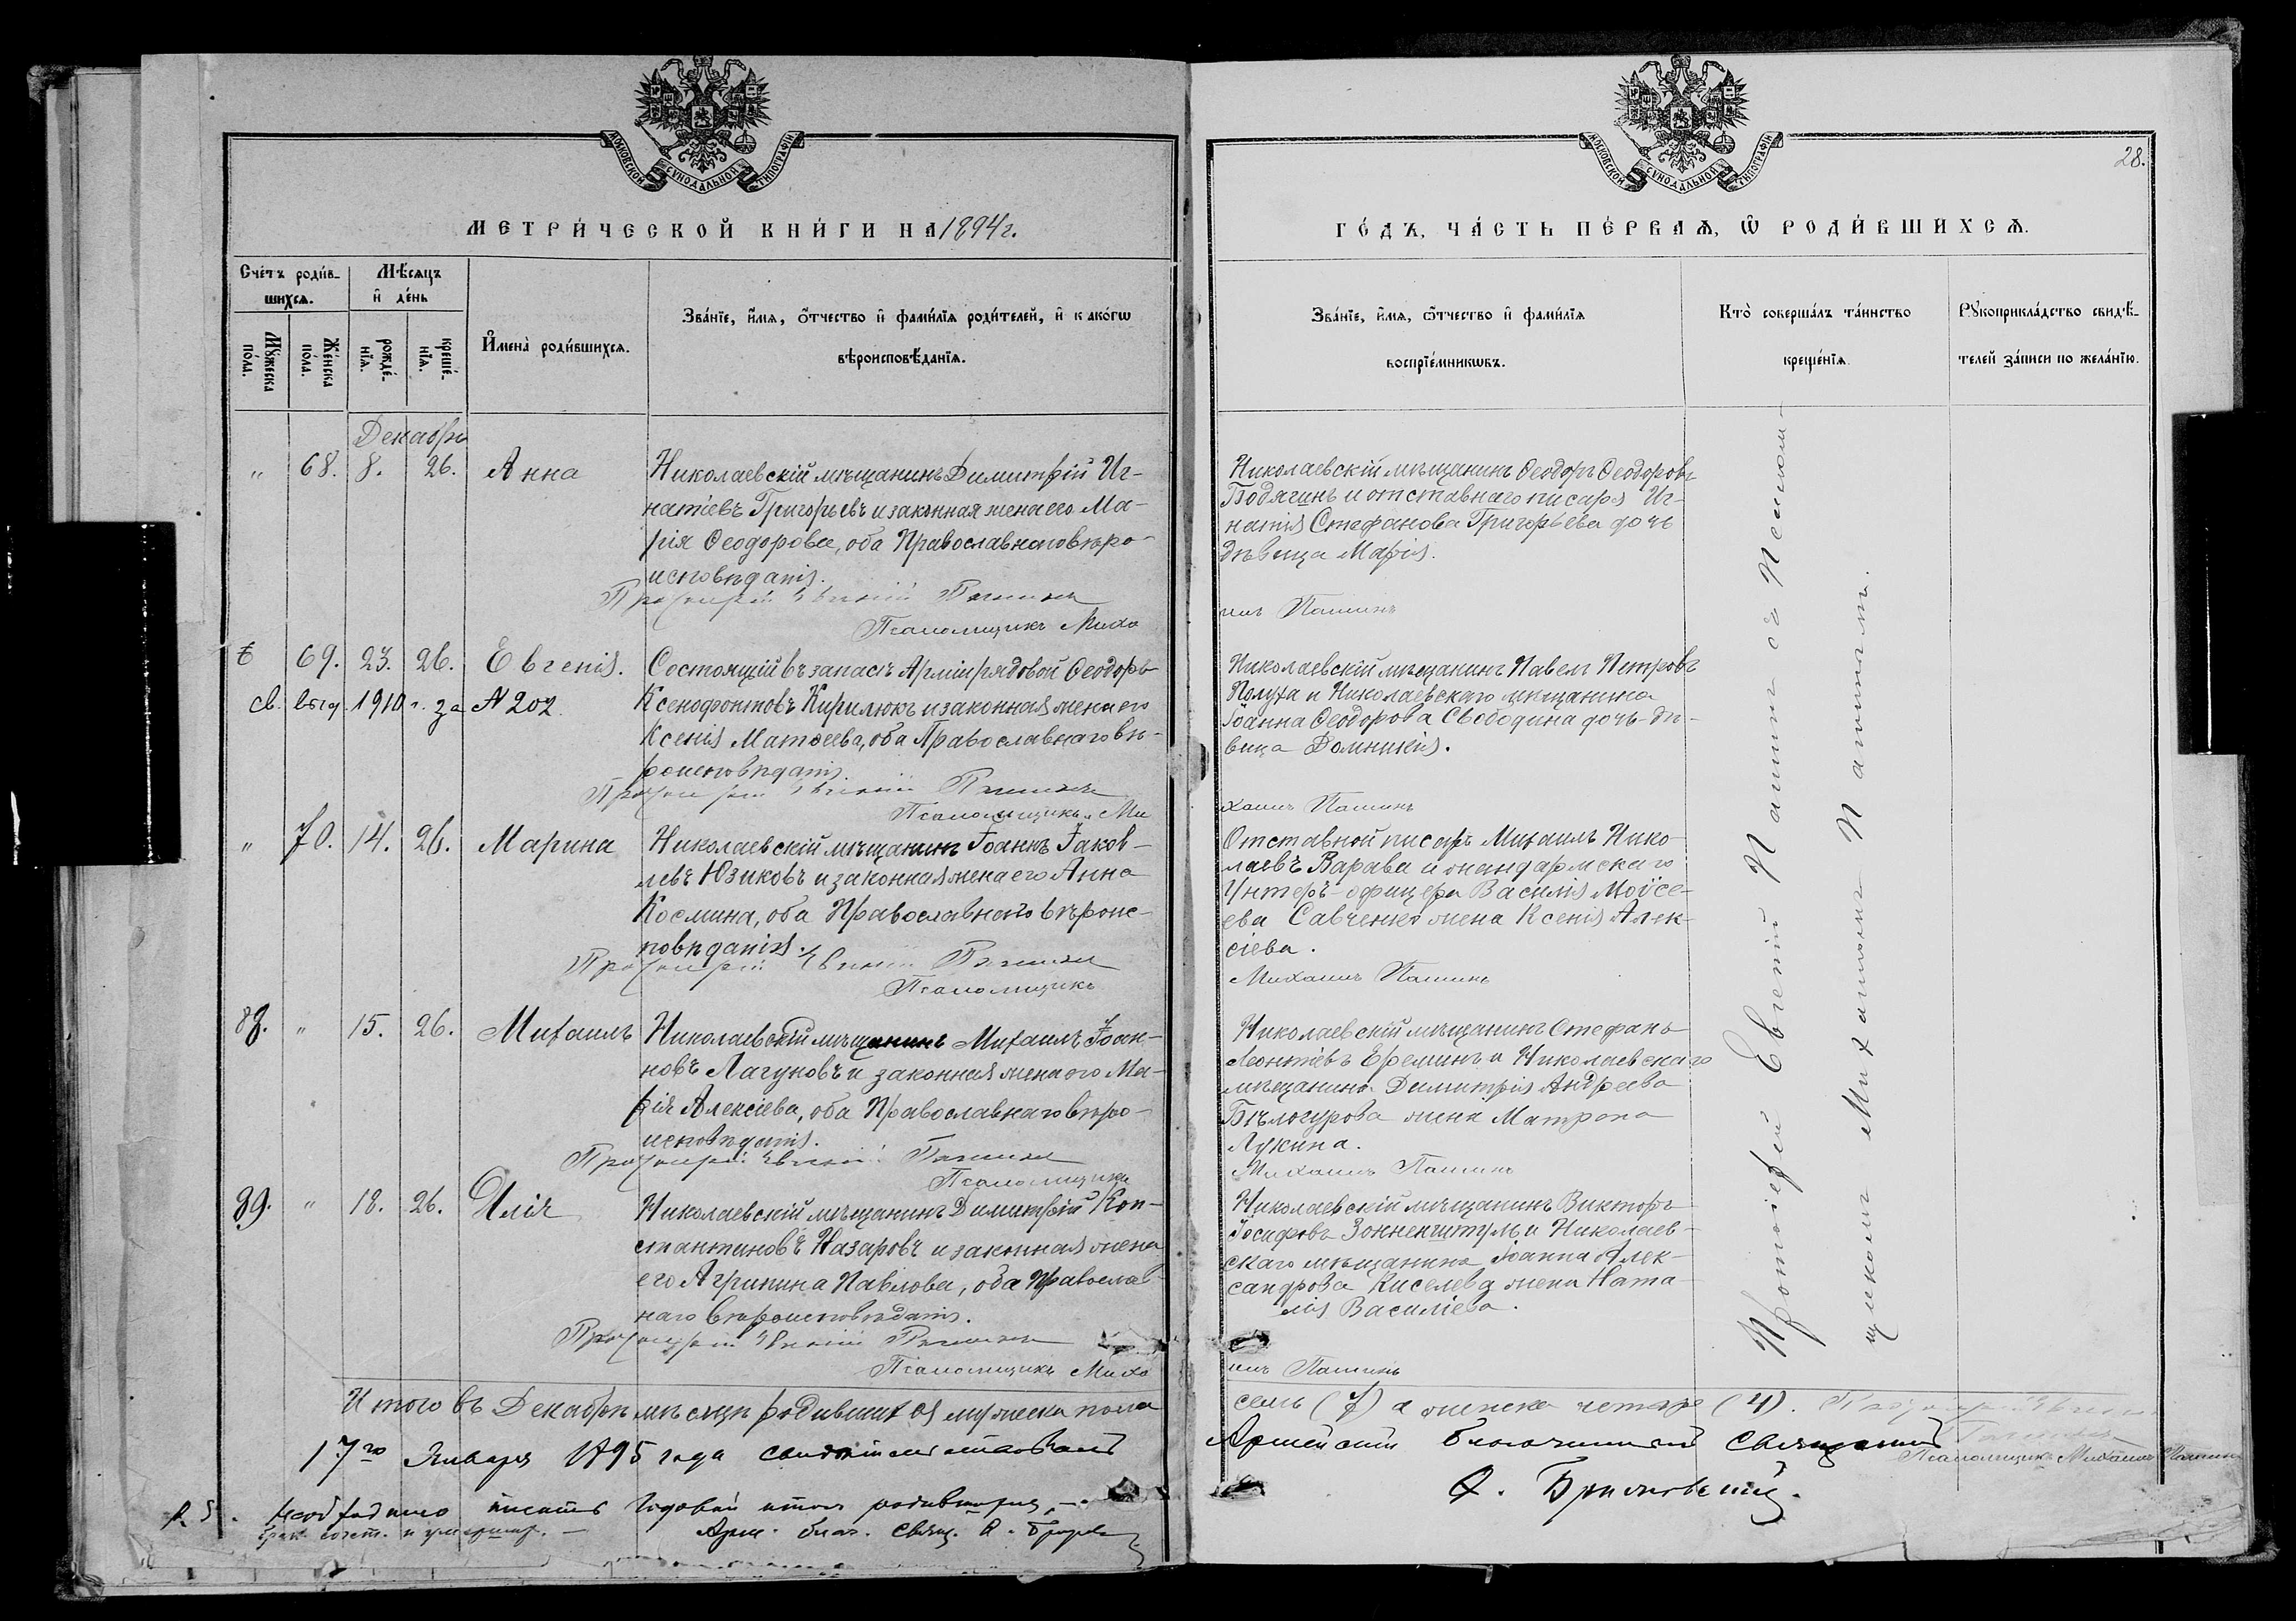 МОСКОВСКОЙ СѴНОДАЛЬНОЙ ТИПОГРАФІИ
МЕТРИ́ЧЕСКОЙ КНИ́ГИ НА 1894 г.
Сче́тъ роди́в-
шихсѧ.
Мѣ́сѧцъ
и҆ де́нь
Мꙋ́жеска
по́ла.
Же́нска
по́ла.
рожде́-
нїѧ.
креще́-
нїѧ.
И҆мена̀ роди́вшихсѧ.
Зва́нїе, и҆́мѧ, ѻ҆́тчество и҆ фами́лїѧ роди́телей, и҆ како́гѡ
вѣроисповѣ́данїѧ.
Декабрь
" 68. 8. 26. Анна
Николаевскій мѣщанинъ Димитрій Иг-
натіевъ Григорьевъ и законная жена его Ма-
рія Ѳеодорова, оба Православнаго вѣро-
исповѣданія.
Протоіерей Евгеній Пашинъ
Псаломщикъ Миха
69. 23. 26. Евгенія.
св. выд. 1910 г. за № 202
Состоящій въ запасѣ Арміи рядовой Ѳеодоръ
Ксенофонтовъ Кирилюкъ и законная жена его
Ксенія Матѳеева, оба Православнаго вѣ-
роисповѣданія.
Протоіерей Евгеній Пашинъ
Псаломщикъ Ми
" 70. 14. 26. Марина
Николаевскій мѣщанинъ Іоаннъ Іаков-
левъ Юзиковъ и законная жена его Анна
Космина, оба Православнаго вѣроис-
повѣданія.
Протоіерей Евгеній Пашинъ
Псаломщикъ
88. " 15. 26. Михаилъ
Николаевскій мѣщанинъ Михаилъ Іоан-
новъ Лагуновъ и законная жена его Ма-
рія Алексіева, оба Православнаго вѣро-
исповѣданія.
Протоіерей Евгеній Пашинъ
Псаломщикъ
89. " 18. 26. Илія
Николаевскій мѣщанинъ Димитрій Кон-
стантиновъ Назаровъ и законная жена
его Агрипина Павлова, оба Православ-
наго вѣроисповѣданія.
Протоіерей Евгеній Пашинъ
Псаломщикъ Миха
Итого въ Декабрѣ мѣсяцѣ родившихся мужеска пола
17го Января 1895 года свидѣтельствовалъ
P.S. Необходимо писать годовой итогъ родившихся,
брак. сочет. и умерших. — Арм. благ. свящ.
МОСКОВСКОЙ СѴНОДАЛЬНОЙ ТИПОГРАФІИ
28.
ГО́ДЪ, ЧА́СТЬ ПЕ́РВАѦ, Ѡ҆ РОДИ́ВШИХСѦ.
Зва́нїе, и҆́мѧ, ѻ҆́тчество и҆ фами́лїѧ
воспрїе́мникѡвъ.
Кто̀ соверша́лъ та́инство
креще́нїѧ.
Рꙋкоприкла́дство свидѣ́-
телей за́писи по жела́нїю.
Николаевскій мѣщанинъ Ѳеодоръ Ѳеодоровъ
Подягинъ и отставнаго писаря Иг-
натія Стефанова Григорьева дочь
дѣвица Марія.
илъ Пашинъ
Николаевскій мѣщанинъ Павелъ Петровъ
Полуха и Николаевскаго мѣщанина
Іоанна Ѳеодорова Свободина дочь дѣ-
вица Домникія.
хаилъ Пашинъ
Отставной писарь Михаилъ Нико-
лаевъ Варава и жандармскаго
Унтеръ-офицера Василія Моѵсе-
ева Савченко жена Ксенія Алек-
сіева.
Михаилъ Пашинъ
Николаевскій мѣщанинъ Стефанъ
Леонтіевъ Ереминъ и Николаевскаго
мѣщанина Димитрія Андреева
Бѣлогурова жена Матрона
Лукина.
Михаилъ Пашинъ
Николаевскій мѣщанинъ Викторъ
Іосифовъ Зонненштуль и Николаев-
скаго мѣщанина Іоанна Алек-
сандрова Киселева жена Ната-
лія Василіева.
илъ Пашинъ
Протоіерей Евгеній Пашинъ съ Псалом-
щикомъ Михаиломъ Пашинымъ.
семь (7) а женска четыре (4). Протоіерей Евгеній
Пашинъ
Псаломщикъ Михаилъ Пашинъ
Армейскій благочинный Священникъ